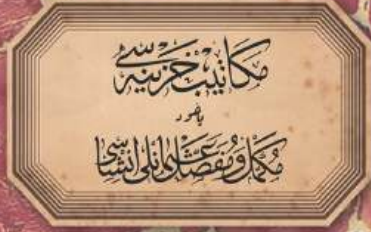 مكاتيب خزينه سى
ياخود
مكمل و مفصل عثمانلى انشاسى